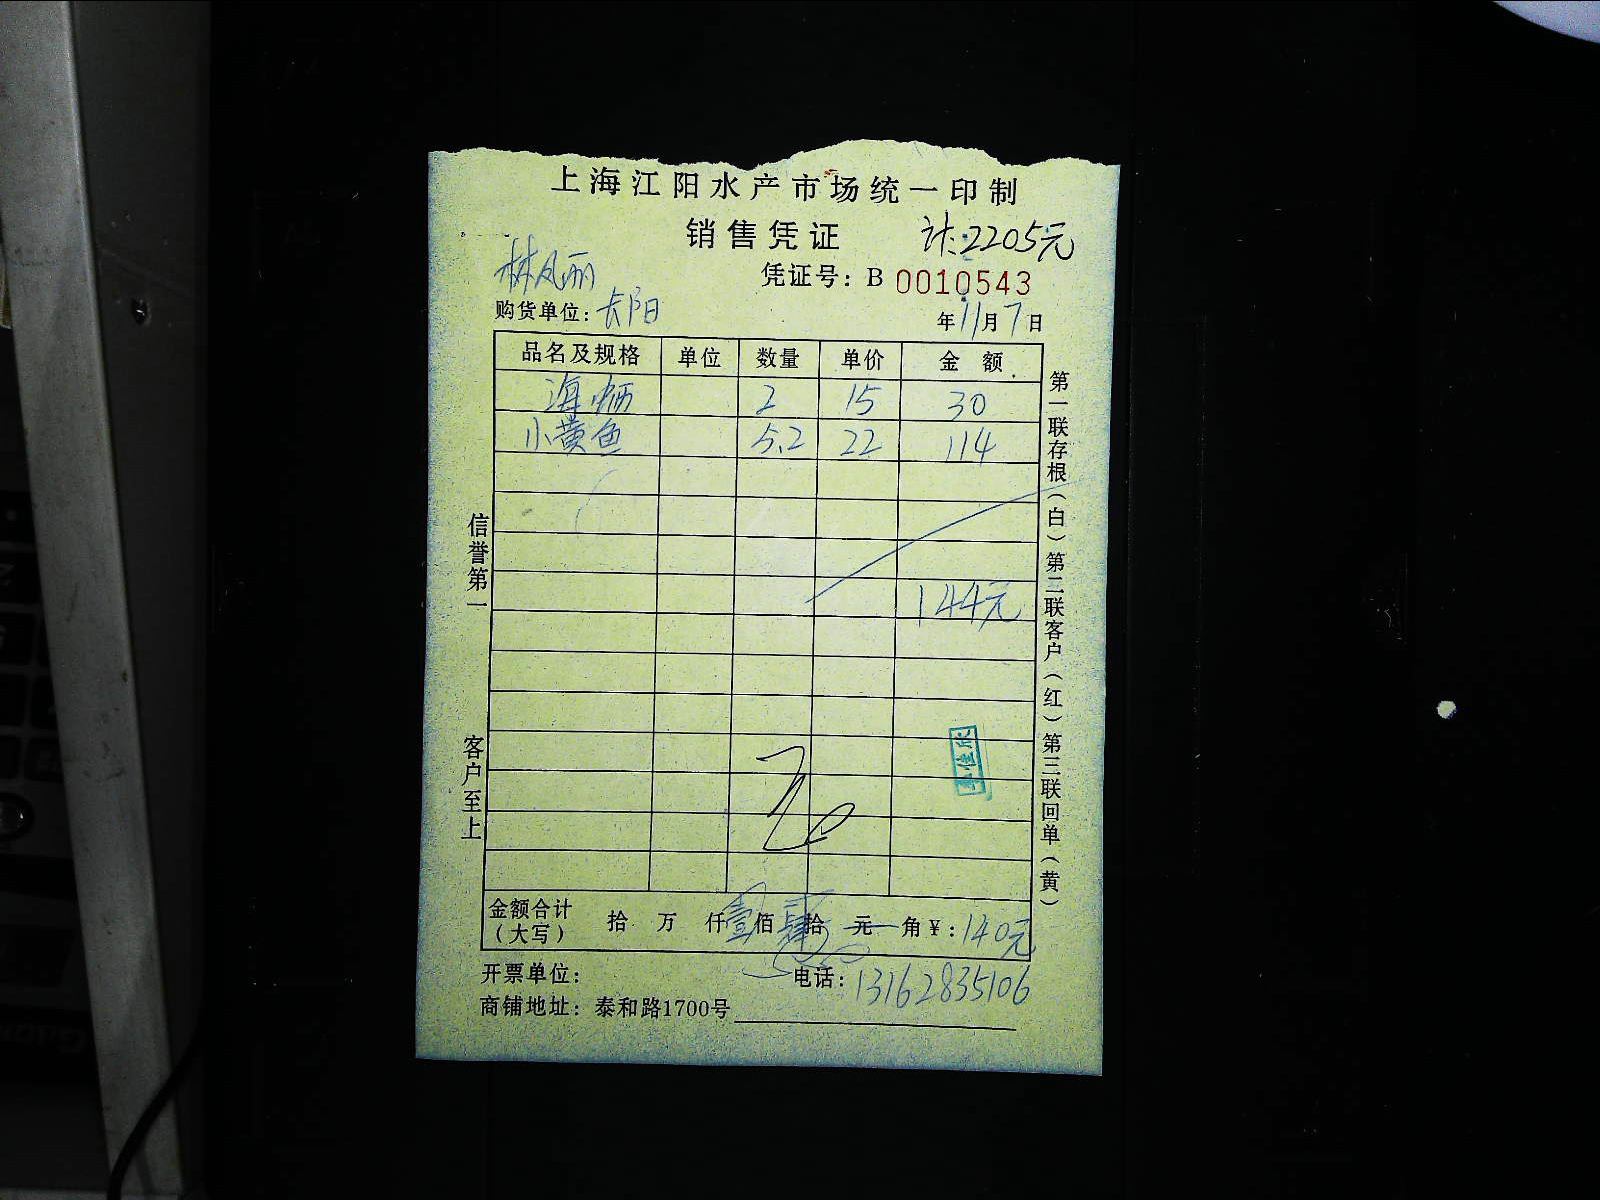 上海江阳水产市场统一印制
销售凭证 计:2205元
林凤丽 凭证号: B 0010543
购货单位: 长阳 年 11 月 7 日
品名及规格 单位 数量 单价 金额
海 2 15 30
小黄鱼 5.2 22 114
144元
金额合计（大写） 拾 万 仟 壹 佰 肆 拾 元 角 ¥: 140元
开票单位: 电话: 13162835106
商铺地址: 泰和路1700号
信誉第一
客户至上
第一联存根（白）第二联客户（红）第三联回单（黄）